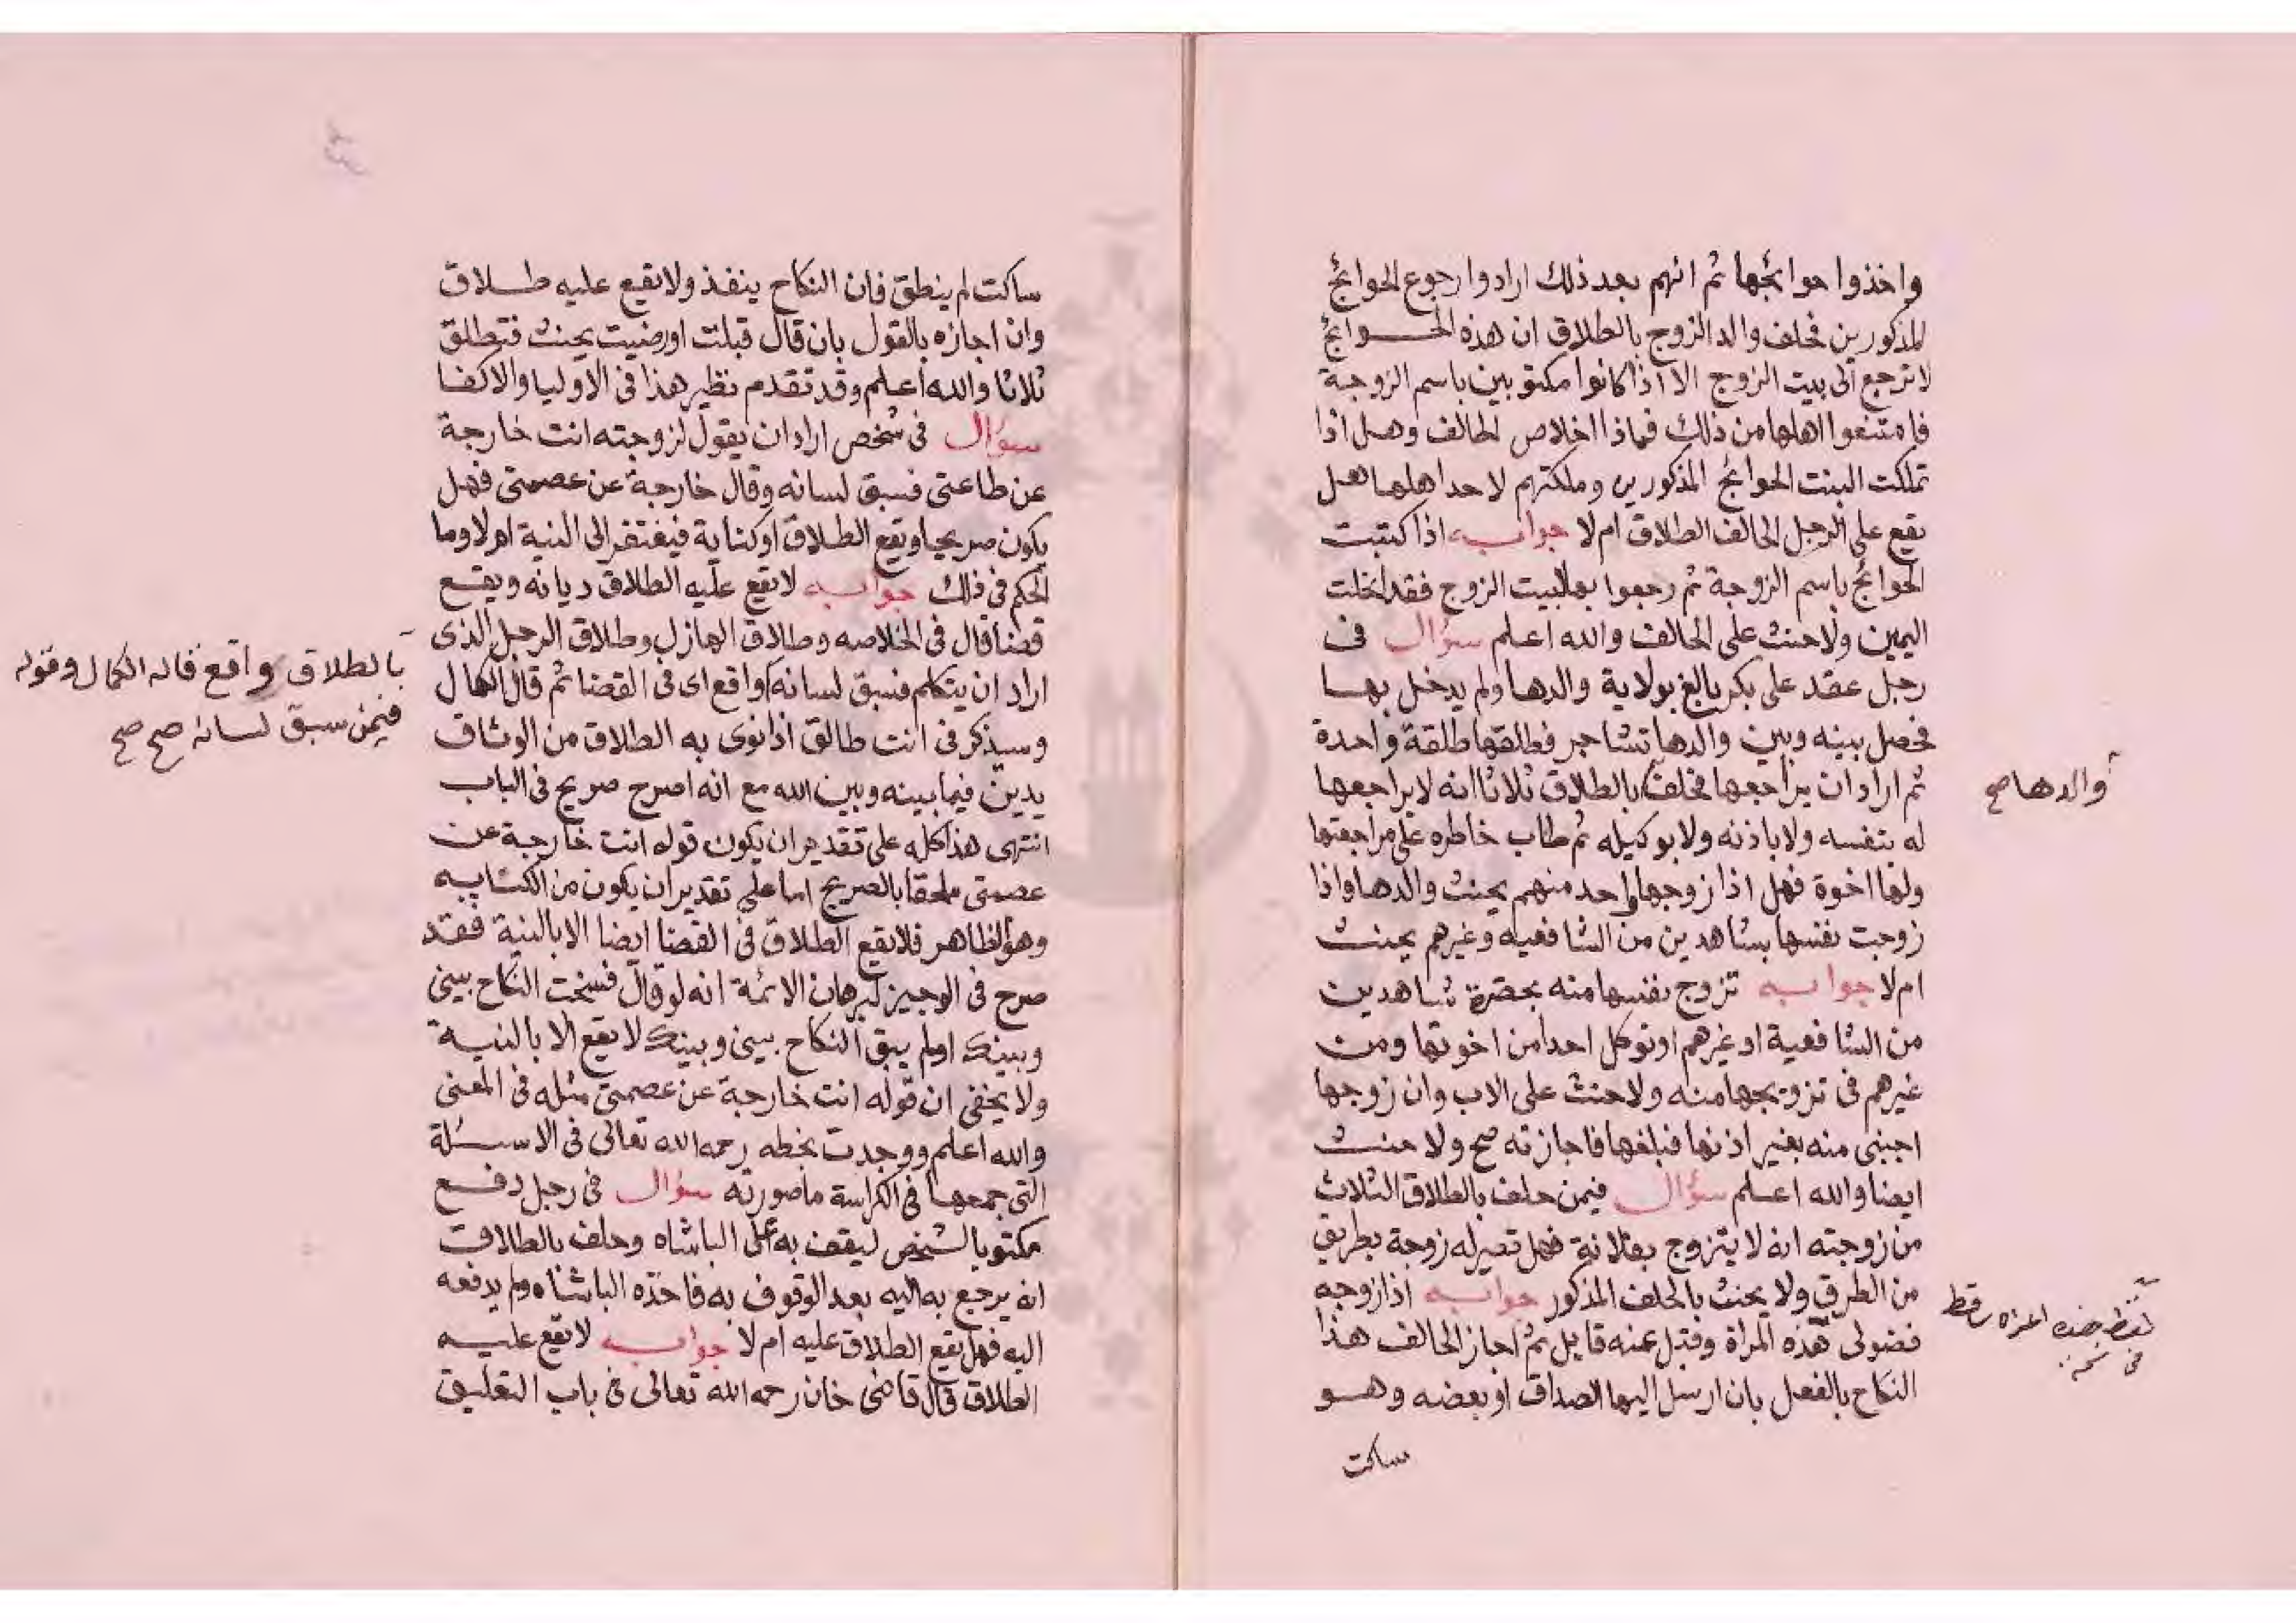 واخذوا حوائجها ثم انهم بعد ذلك ارادوا رجوع الحوائج
المذكورين فحلف والد الزوج بالطلاق ان هذه الحوائج
لا ترجع الى بيت الزوج الا اذا كانوا مكتوبين باسم الزوجة
فامتنعوا اهلها من ذلك فماذا اخلاص الحالف وهل اذا
تملكت البنت الحوائج المذكورين وملكتهم لاحد اهلها هل
يقع على الرجل الحالف الطلاق ام لا جوابه اذا كتبت
الحوائج باسم الزوجة ثم رجعوا بها لبيت الزوج فقد انحلت
اليمين ولا حنث على الحالف والله اعلم سؤال في
رجل عقد على بكر بالغ بولاية والدها ولم يدخل بها
فحصل بينه وبين والدها تشاجر فطلقها طلقة واحدة
ثم اراد ان يراجعها فحلف بالطلاق ثلاثا انه لا يراجعها
والدها صح
له بنفسه ولا باذنه ولا بوكيله ثم طاب خاطره على مراجعتها
ولها اخوة فهل اذا زوجها واحد منهم يحنث والدها واذا
زوجت نفسها بشاهدين من الشافعية وغيرهم يحنث
ام لا جوابه تزوج نفسها منه بحضرة شاهدين
من الشافعية او غيرهم او توكل احدا من اخوتها ومن
غيرهم في تزويجها منه ولا حنث على الاب وان زوجها
اجنبي منه بغير اذنها فبلغها فاجازته صح ولا حنث
ايضا والله اعلم سؤال فيمن حلف بالطلاق الثلاث
من زوجته انه لا يتزوج بفلانة فهل تصير له زوجة بطريق
من الطرق ولا يحنث بالحلف المذكور جوابه اذا زوجه
فضولي هذه المراة وقبل عنه قابل ثم اجاز الحالف هذا
النكاح بالفعل بان ارسل اليها الصداق او بعضه وهو
ساكت
ساكت لم ينطق فان النكاح ينفذ ولا يقع عليه طلاق
وان اجازه بالقول بان قال قبلت او رضيت يحنث فتطلق
ثلاثا والله اعلم وقد تقدم نظير هذا في الاوليا والاكفا
سؤال في شخص اراد ان يقول لزوجته انت خارجة
عن طاعتي فسبق لسانه وقال خارجة عن عصمتي فهل
يكون صريحا ويقع الطلاق او كناية فيفتقر الى النية ام لا وما
الحكم في ذلك جوابه لا يقع عليه الطلاق ديانه ويقع
قضا قال في الخلاصه وطلاق الهازل وطلاق الرجل الذي
اراد ان يتكلم فسبق لسانه واقع اي في القضا ثم قال الكمال
بالطلاق واقع قاله الكمال وقوله
فيمن سبق لسانه صح صح
وسيذكر في انت طالق اذا نوى به الطلاق من الوثاق
يدين فيما بينه وبين الله مع انه اصرح صريح في الباب
انتهى هذا كله على تقدير ان يكون قوله انت خارجة عن
عصمتي ملحقا بالصريح اما على تقدير ان يكون من الكنايه
وهو الظاهر فلا يقع الطلاق في القضا ايضا الا بالنية فقد
صرح في الوجيز لبرهان الائمة انه لو قال فسخت النكاح بيني
وبينك او لم يبق النكاح بيني وبينك لا يقع الا بالنية
ولا يخفى ان قوله انت خارجة عن عصمتي مثله في المعنى
والله اعلم ووجدت بخطه رحمه الله تعالى في الاسئلة
التي جمعها في الكراسة ما صورته سؤال في رجل دفع
مكتوبا لشخص ليقف به على الباشاه وحلف بالطلاق
انه يرجع به اليه بعد الوقوف به فاخذه الباشاه ولم يدفعه
اليه فهل يقع الطلاق عليه ام لا جوابه لا يقع عليه
الطلاق قال قاضي خان رحمه الله تعالى في باب التعليق